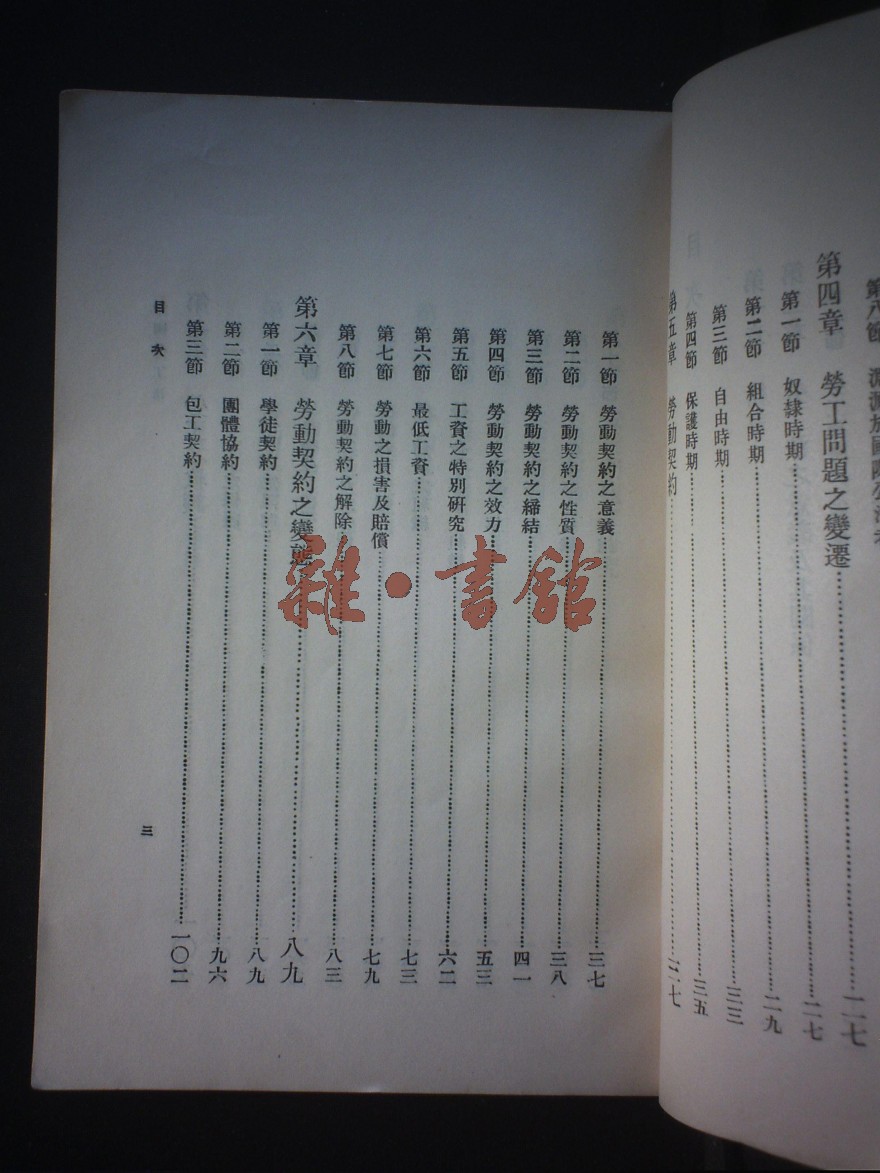 第四章 勞工問題之變遷……二七
第一節 奴隸時期……二七
第二節 組合時期……二九
第三節 自由時期……三三
第四節 保護時期……三五
第五章 勞動契約……三七
第一節 勞動契約之意義……三七
第二節 勞動契約之性質……三八
第三節 勞動契約之締結……四一
第四節 勞動契約之效力……五三
第五節 工資之特別研究……六二
第六節 最低工資……七三
第七節 勞動之損害及賠償……七九
第八節 勞動契約之解除……八三
第六章 勞動契約之變態……八九
第一節 學徒契約……八九
第二節 團體協約……九六
第三節 包工契約……一〇二
目次 三
雜·書館